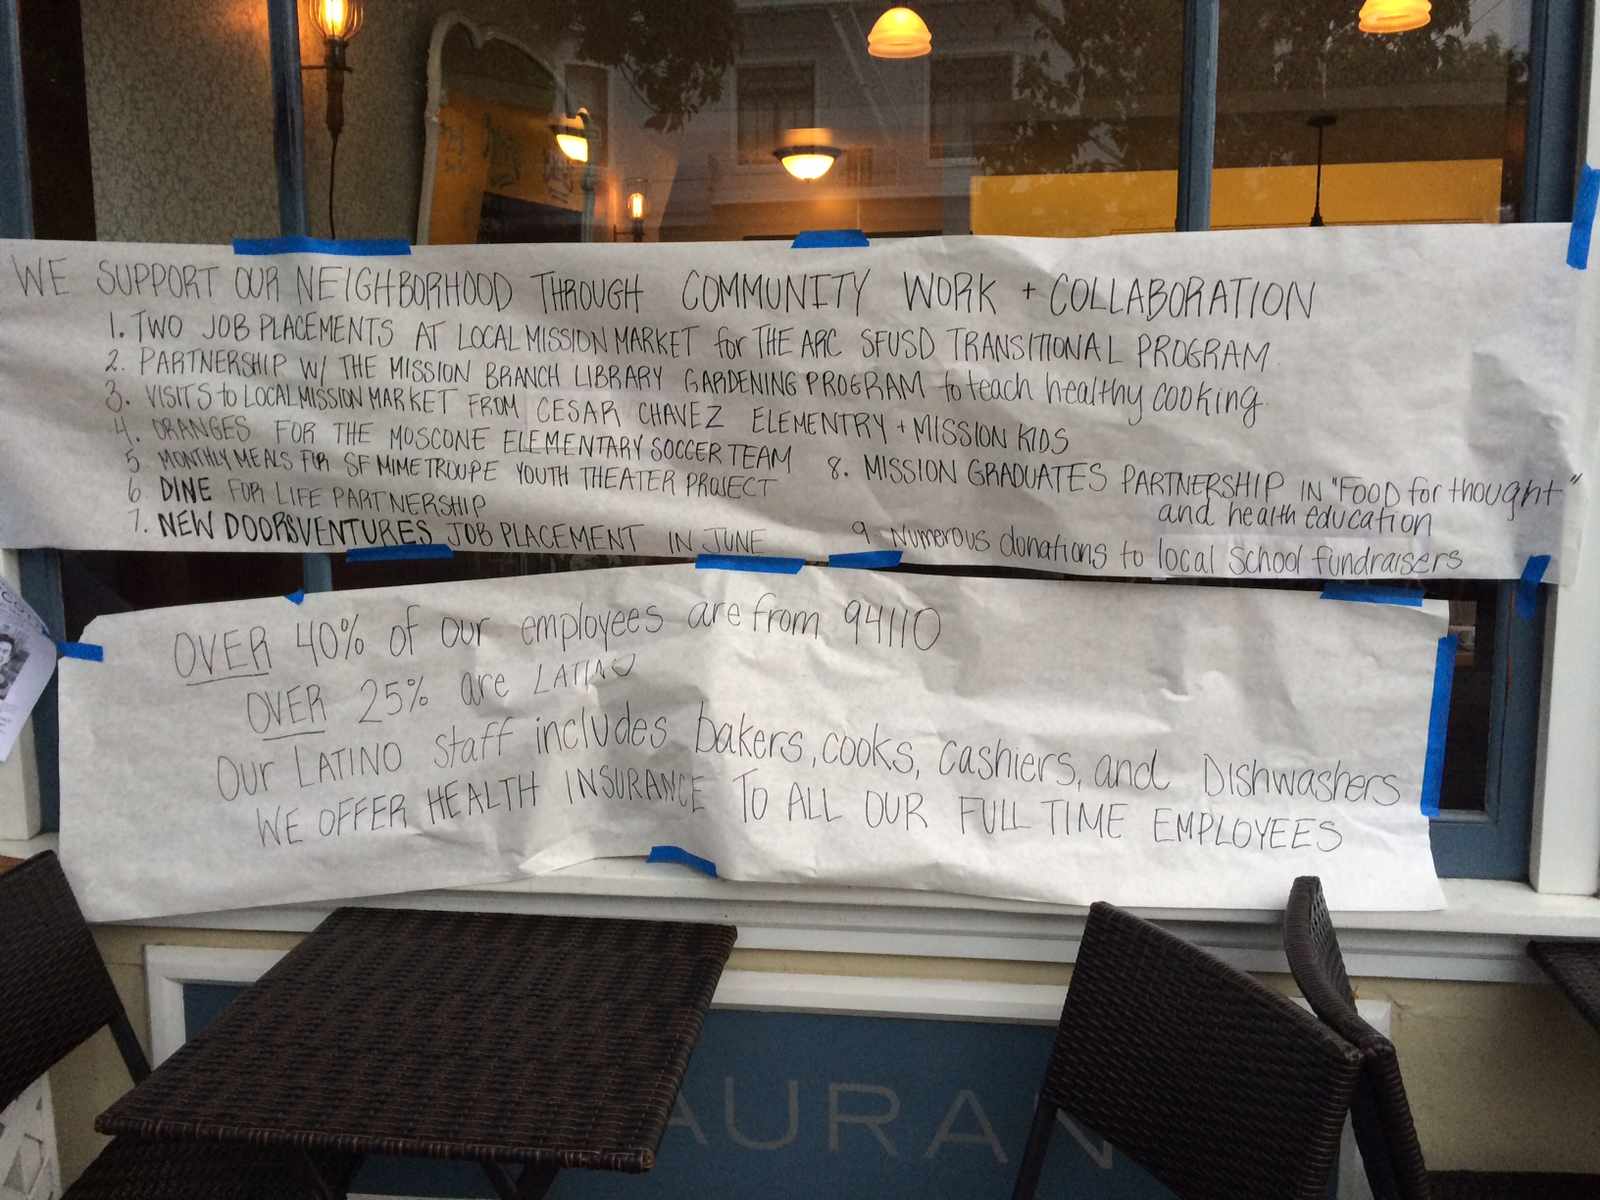 WE SUPPORT OUR NEIGHBORHOOD THROUGH COMMUNITY WORK + COLLABORATION
1. TWO JOB PLACEMENTS AT LOCAL MISSION MARKET for THE ARC SFUSD TRANSITIONAL PROGRAM
2. PARTNERSHIP W/ THE MISSION BRANCH LIBRARY GARDENING PROGRAM to teach healthy cooking.
3. VISITS to LOCAL MISSION MARKET FROM CESAR CHAVEZ ELEMENTRY + MISSION KIDS
4. ORANGES FOR THE MOSCONE ELEMENTARY SOCCER TEAM
5 MONTHLY MEALS FOR SF MIME TROUPE YOUTH THEATER PROJECT
6 DINE FOR LIFE PARTNERSHIP
7. NEW DOORSVENTURES JOB PLACEMENT IN JUNE
8. MISSION GRADUATES PARTNERSHIP IN "FOOD for thought"
and health education
9 Numerous donations to local School fundraisers
OVER 40% of our employees are from 94110
OVER 25% are LATINO
Our LATINO staff includes bakers, cooks, cashiers, and DISHwashers
WE OFFER HEALTH INSURANCE TO ALL OUR FULL TIME EMPLOYEES
AURAN